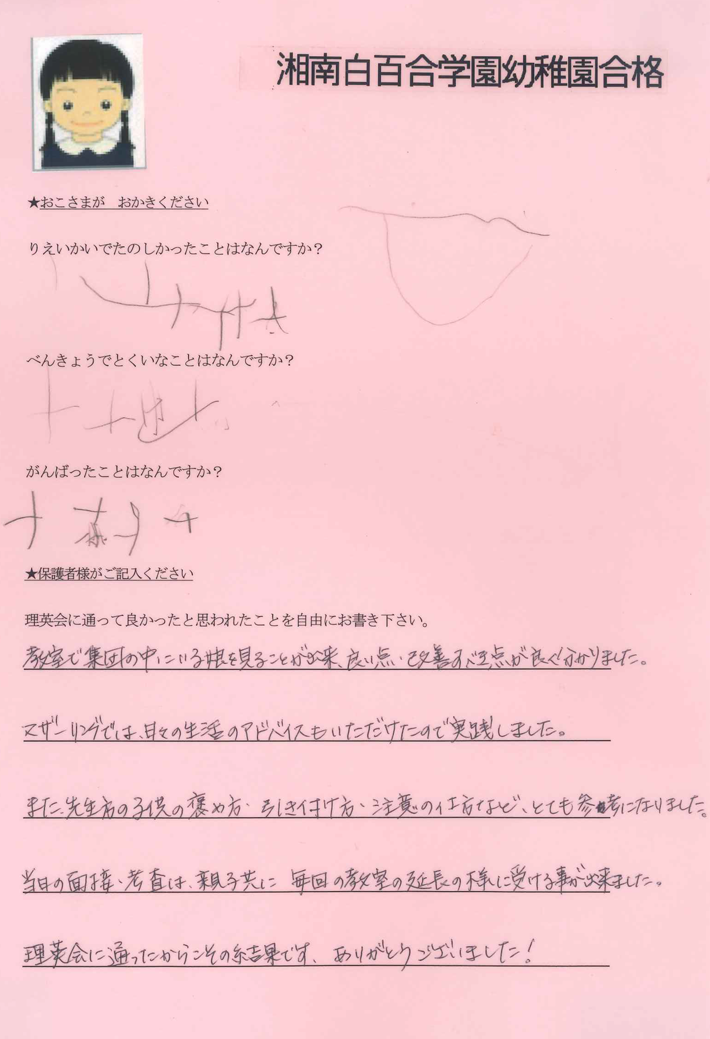 湘南白百合学園幼稚園合格
★おこさまが　おかきください
りえいかいでたのしかったことはなんですか？
べんきょうでとくいなことはなんですか？
がんばったことはなんですか？
★保護者様がご記入ください
理英会に通って良かったと思われたことを自由にお書き下さい。
教室で集団の中にいる娘を見ることが出来、良い点・改善すべき点が良く分かりました。
マザーリングでは、日々の生活のアドバイスもいただけたので実践しました。
また、先生方の子供の褒め方・引き付け方・注意の仕方など、とても参考になりました。
当日の面接・考査は、親子共に 毎回の教室の延長の様に受ける事が出来ました。
理英会に通ったからこその結果です、ありがとうございました！